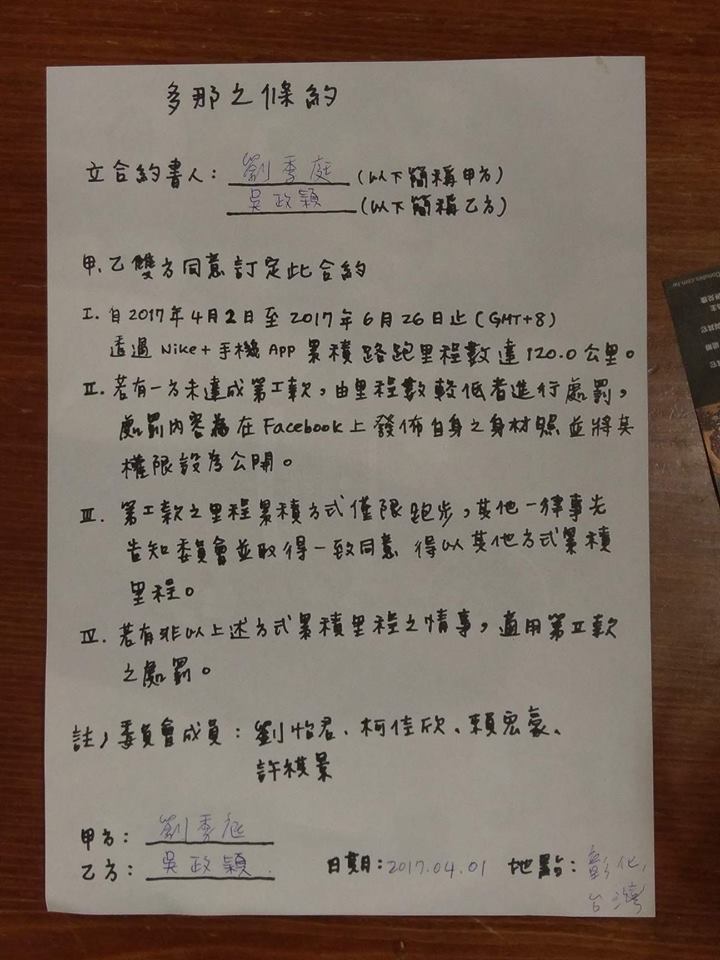 多那之條約
立合約書人：劉季庭(以下簡稱甲方)
吳政穎(以下簡稱乙方)
甲、乙雙方同意訂定此合約
I. 自2017年4月2日至2017年6月26日止(GMT+8)
透過Nike+手機APP累積路跑里程數達120.0公里。
II. 若有一方未達成第I款，由里程數較低者進行處罰，
處罰內容為在Facebook上發佈自身之身材照並將其
權限設為公開。
III. 第I款之里程累積方式僅限跑步，其他一律事先
告知委員會並取得一致同意 得以其他方式累積
里程。
IV. 若有非以上述方式累積里程之情事，適用第II款
之處罰。
註）委員會成員：劉怡君、柯佳欣、賴宏豪、
許祺景
甲方：劉季庭
乙方：吳政穎. 日期：2017.04.01 地點：彰化,
台灣